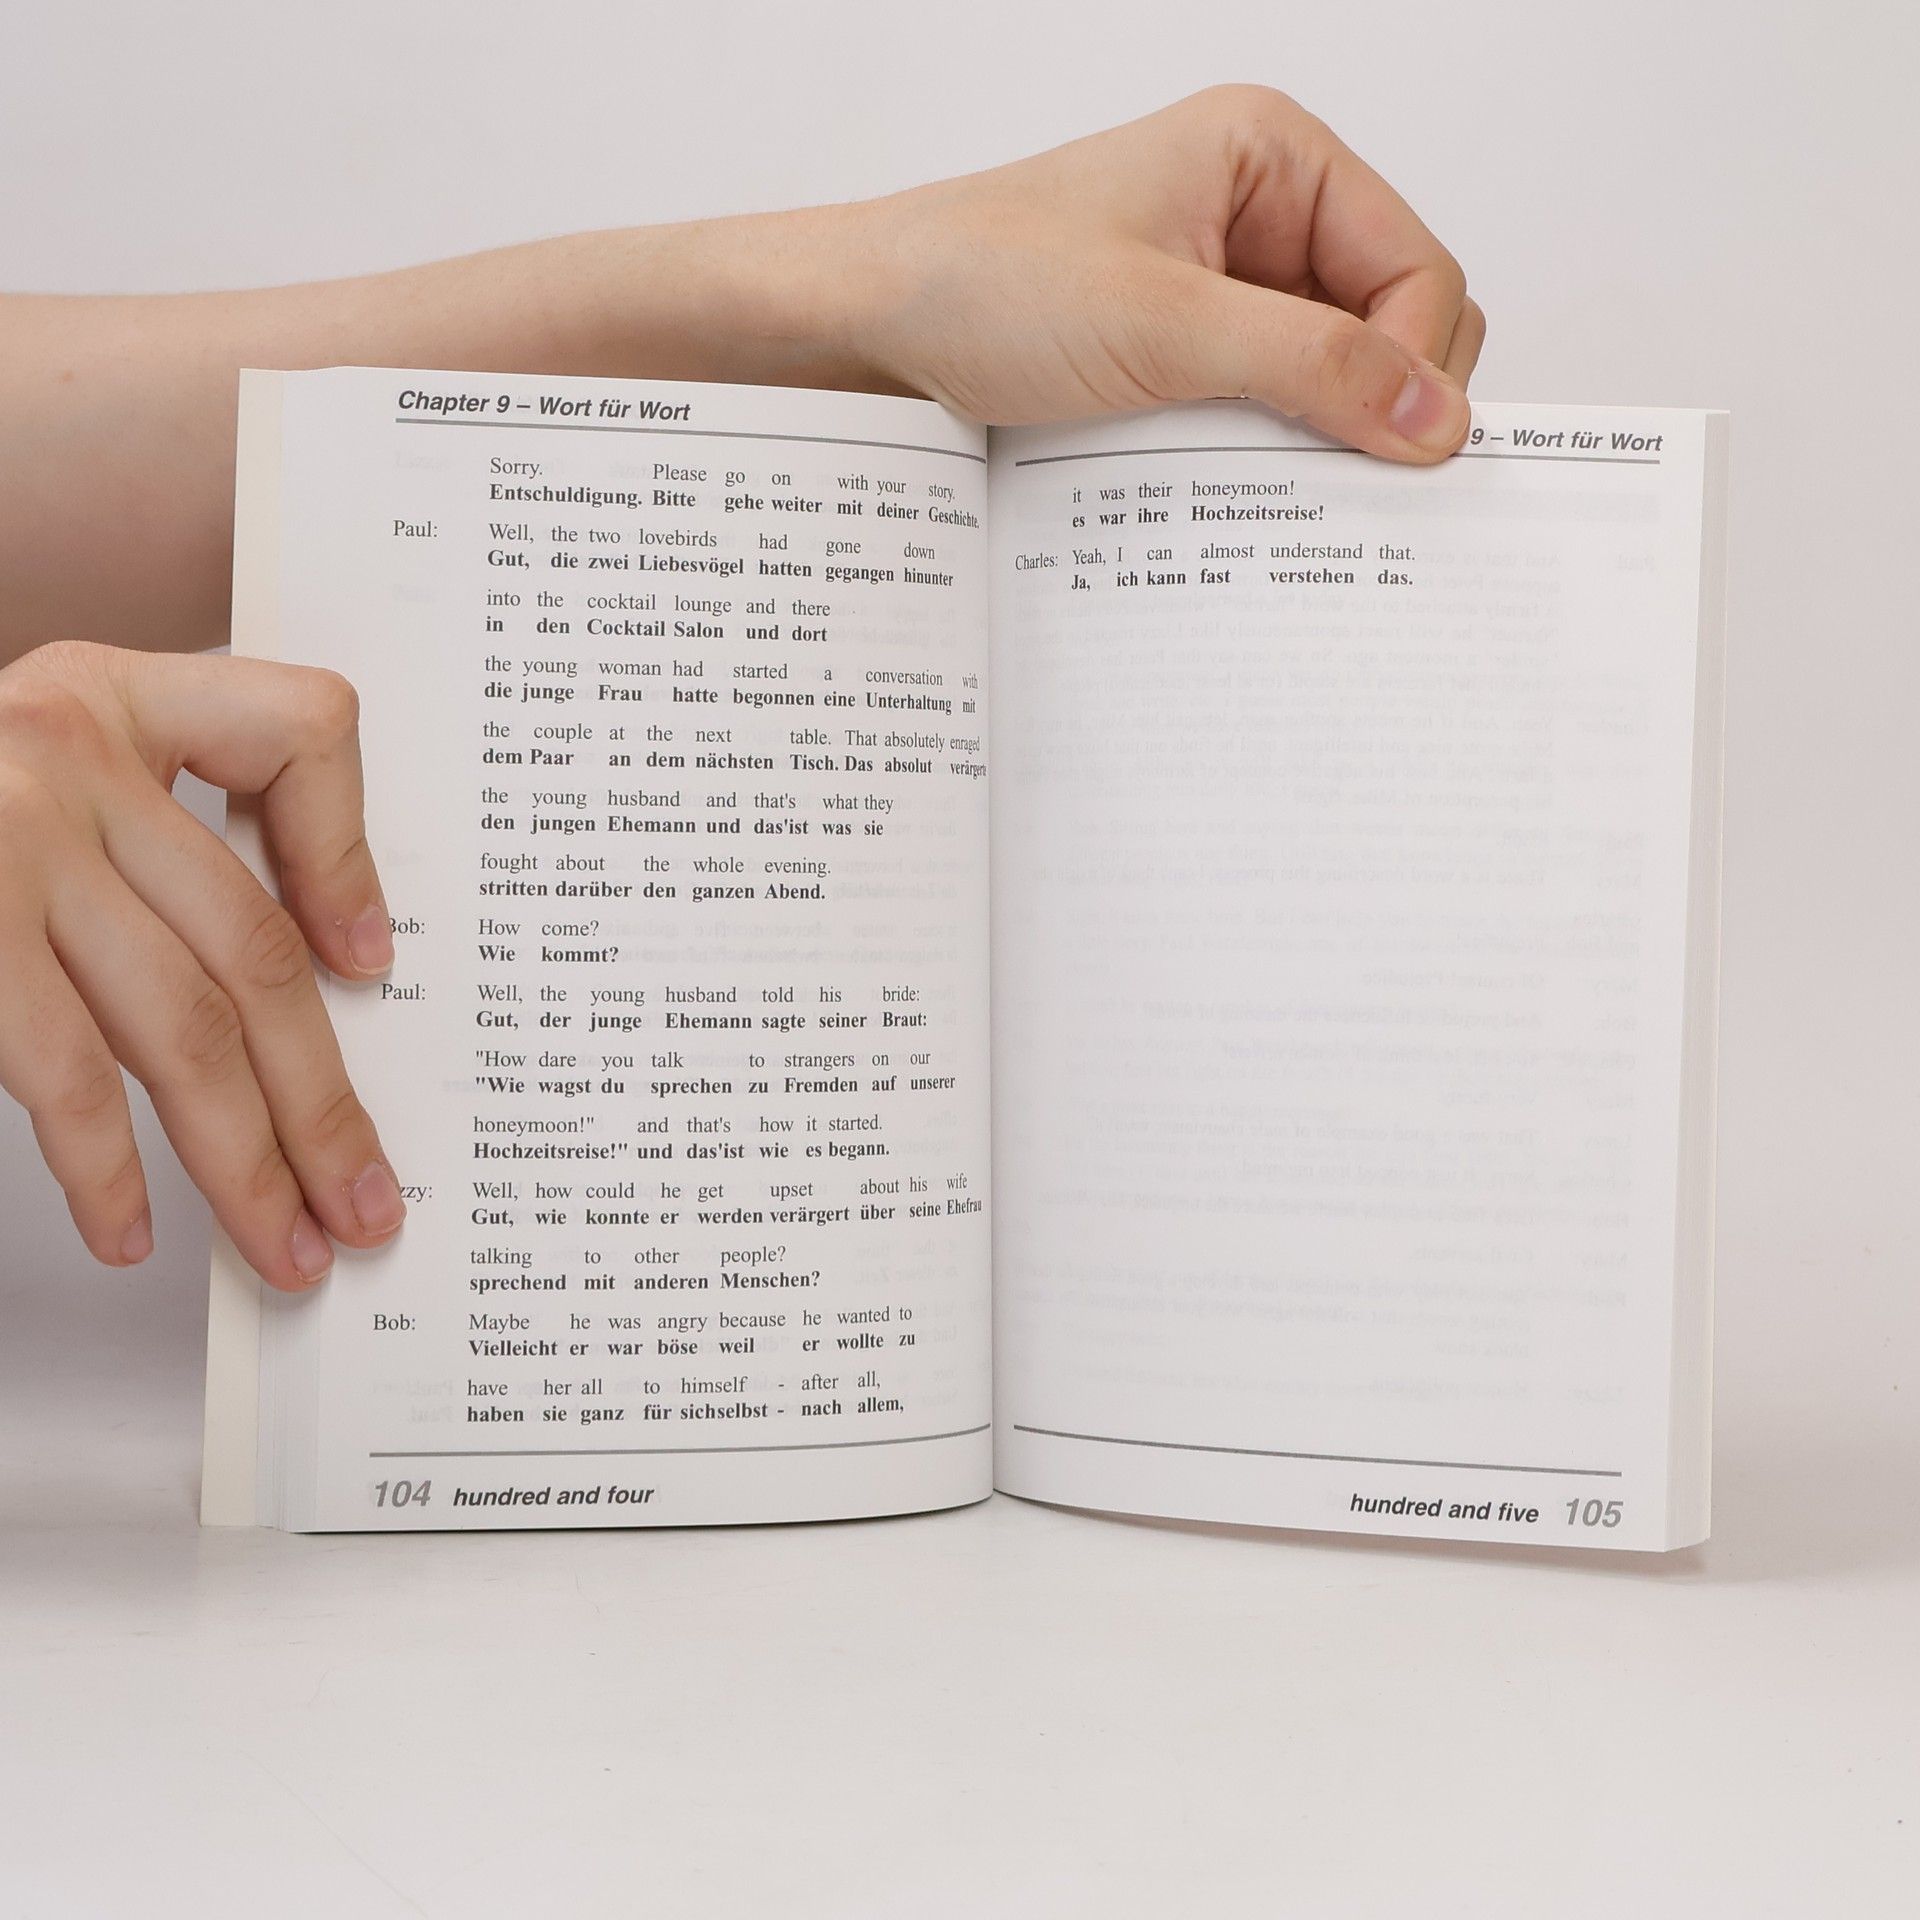 Chapter 9 – Wort für Wort
Sorry. Please go on with your story.
Entschuldigung. Bitte gehe weiter mit deiner Geschichte.
Paul: Well, the two lovebirds had gone down
Gut, die zwei Liebesvögel hatten gegangen hinunter
into the cocktail lounge and there
in den Cocktail Salon und dort
the young woman had started a conversation with
die junge Frau hatte begonnen eine Unterhaltung mit
the couple at the next table. That absolutely enraged
dem Paar an dem nächsten Tisch. Das absolut verärgerte
the young husband and that's what they
den jungen Ehemann und das'ist was sie
fought about the whole evening.
stritten darüber den ganzen Abend.
Bob: How come?
Wie kommt?
Paul: Well, the young husband told his bride:
Gut, der junge Ehemann sagte seiner Braut:
"How dare you talk to strangers on our
"Wie wagst du sprechen zu Fremden auf unserer
honeymoon!" and that's how it started.
Hochzeitsreise!" und das'ist wie es begann.
zzy: Well, how could he get upset about his wife
Gut, wie konnte er werden verärgert über seine Ehefrau
talking to other people?
sprechend mit anderen Menschen?
Bob: Maybe he was angry because he wanted to
Vielleicht er war böse weil er wollte zu
have her all to himself - after all,
haben sie ganz für sichselbst - nach allem,
104 hundred and four
9 – Wort für Wort
it was their honeymoon!
es war ihre Hochzeitsreise!
Charles: Yeah, I can almost understand that.
Ja, ich kann fast verstehen das.
hundred and five 105